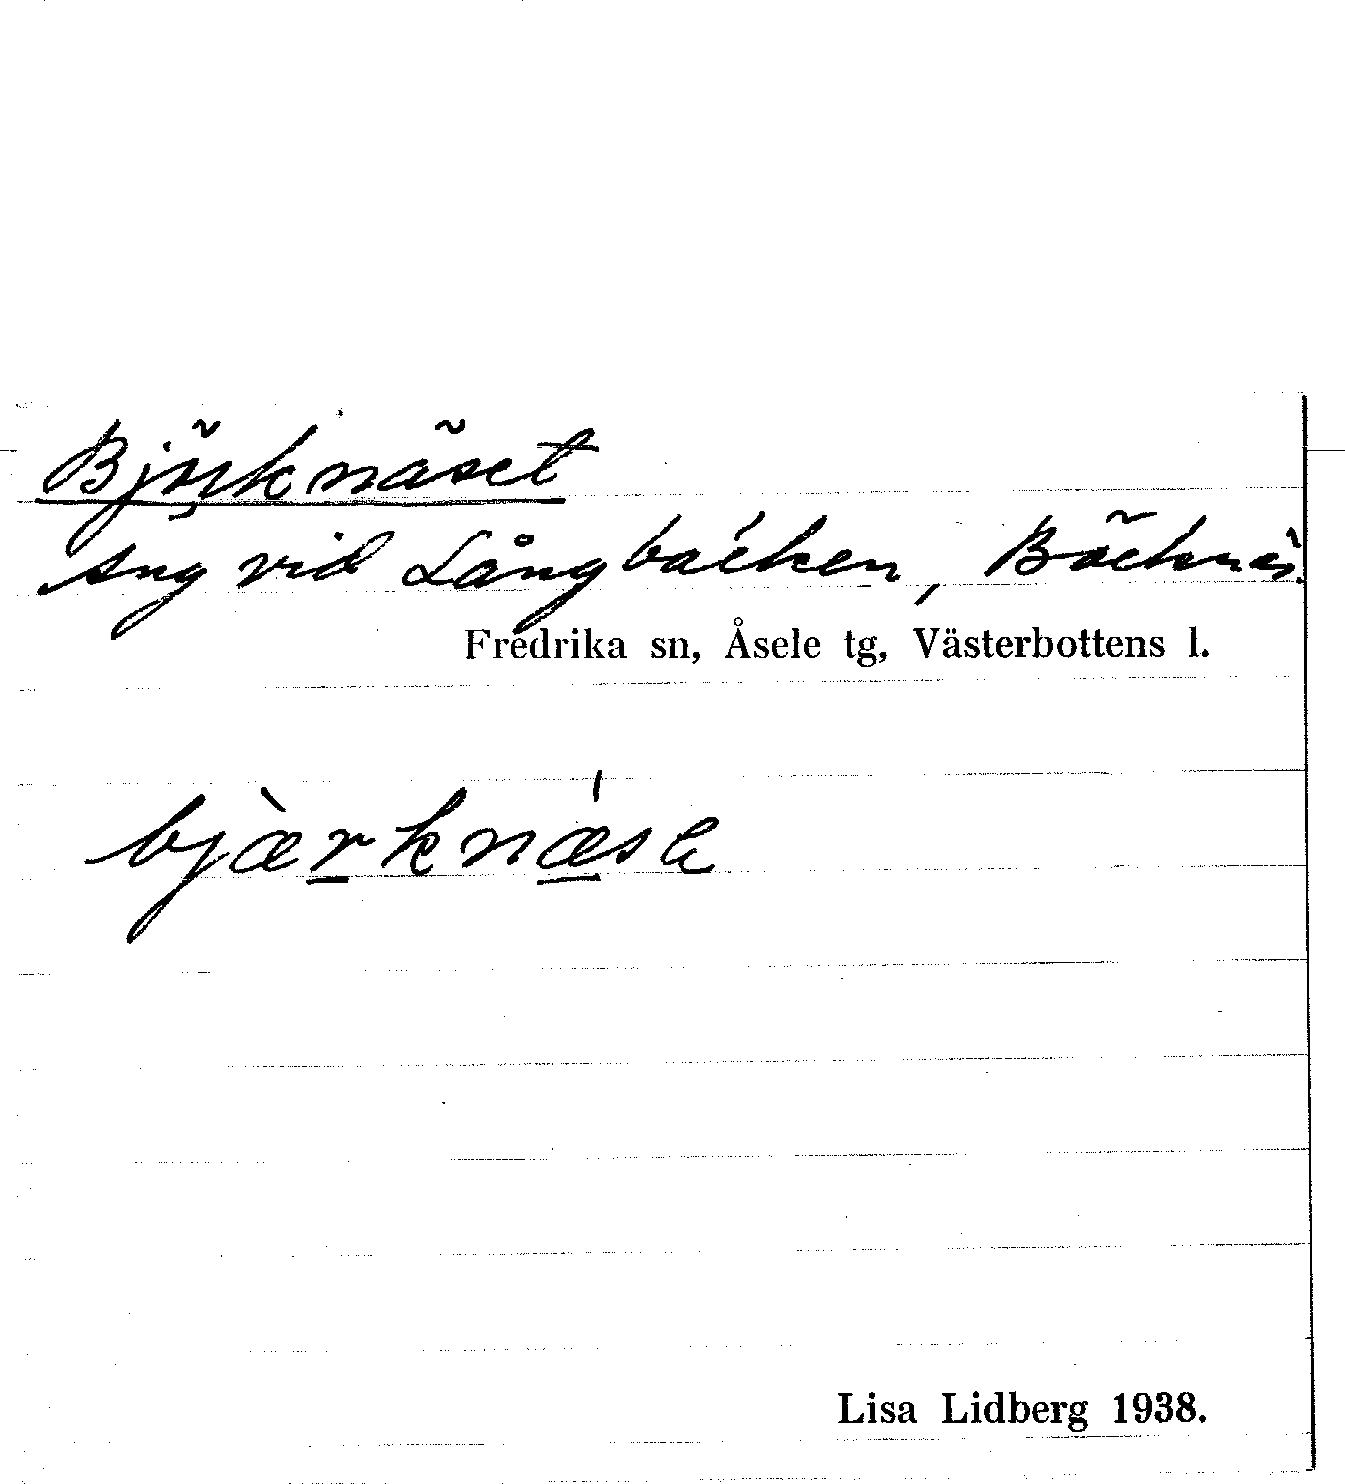 Björknäset
Äng vid Långbäcken, Bäcknäs.
Fredrika sn, Åsele tg, Västerbottens l.
bjæ̀rknǽsɛ
Lisa Lidberg 1938.